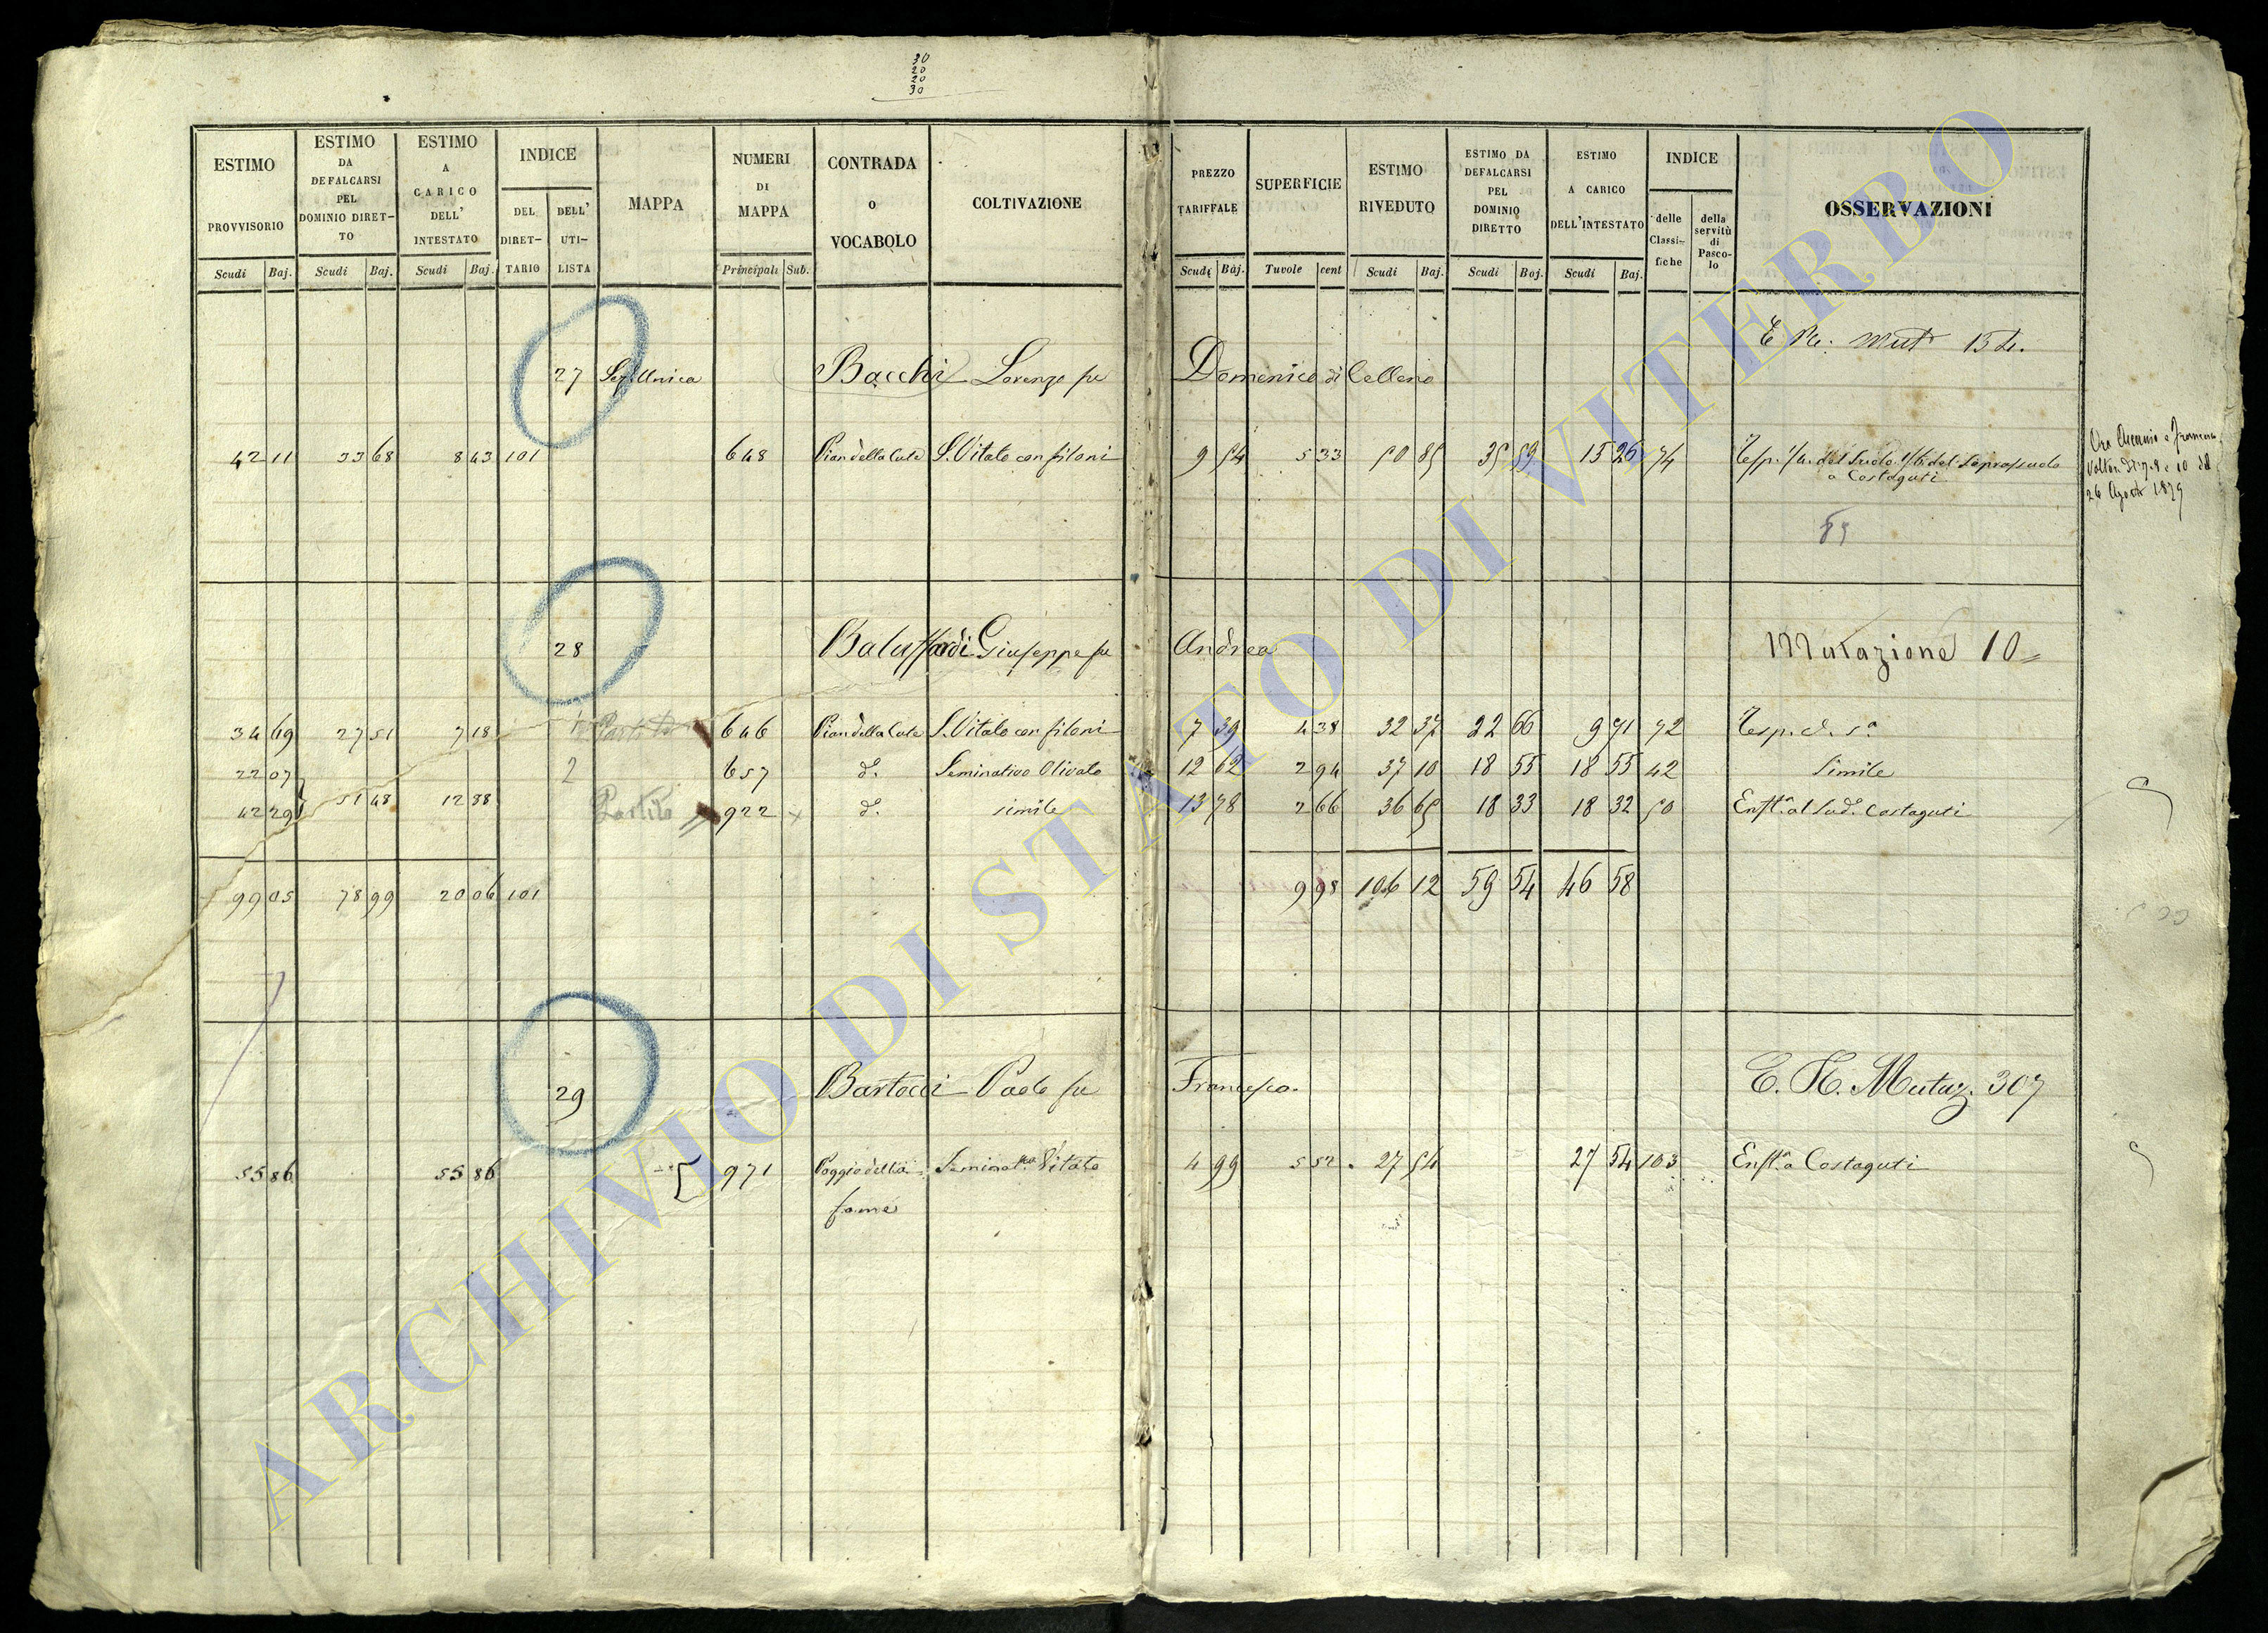 30
20
20
30
ESTIMO PROVVISORIO Scudi Baj.
ESTIMO DA DEFALCARSI PEL DOMINIO DIRETTO Scudi Baj.
ESTIMO A CARICO DELL' INTESTATO Scudi Baj.
INDICE DEL DIRET-TARIO DELL' UTI-LISTA
MAPPA
NUMERI DI MAPPA Principali Sub.
CONTRADA o VOCABOLO
COLTIVAZIONE
PREZZO TARIFFALE Scudi Baj.
SUPERFICIE Tavole cent
ESTIMO RIVEDUTO Scudi Baj.
ESTIMO DA DEFALCARSI PEL DOMINIO DIRETTO Scudi Baj.
ESTIMO A CARICO DELL'INTESTATO Scudi Baj.
INDICE delle Classi-fiche della servitù di Pasco-lo
OSSERVAZIONI
27 Sez. Unica Bacchi Lorenzo fu Domenico di Celleno
42 11 33 68 8 43 101 648 S. Vitato con filoni 9 54 5 33 50 85 35 59 15 26 74
a Costaguti
26 Agosto 1879
28 Giuseppe fu Andrea Mutazione 10
34 69 27 51 7 18 1 646 S. Vitato con filoni 7 39 4 38 32 37 22 66 9 71 72
22 07 2 657 d°. Seminativo Olivato 12 62 2 94 37 10 18 55 18 55 42 Simile
42 29 51 48 12 88 Partito 922 d°. simile 13 78 2 66 36 65 18 33 18 32 50 Costaguti
99 05 78 99 20 06 101 9 98 106 12 59 54 46 58
29 Bartocci Paolo fu Francesco. Mutaz. 307
55 86 55 86 971 Poggio della Vitato 4 99 5 52 27 54 27 54 103 Enft.a a Costaguti
fame
ARCHIVIO DI STATO DI VITERBO